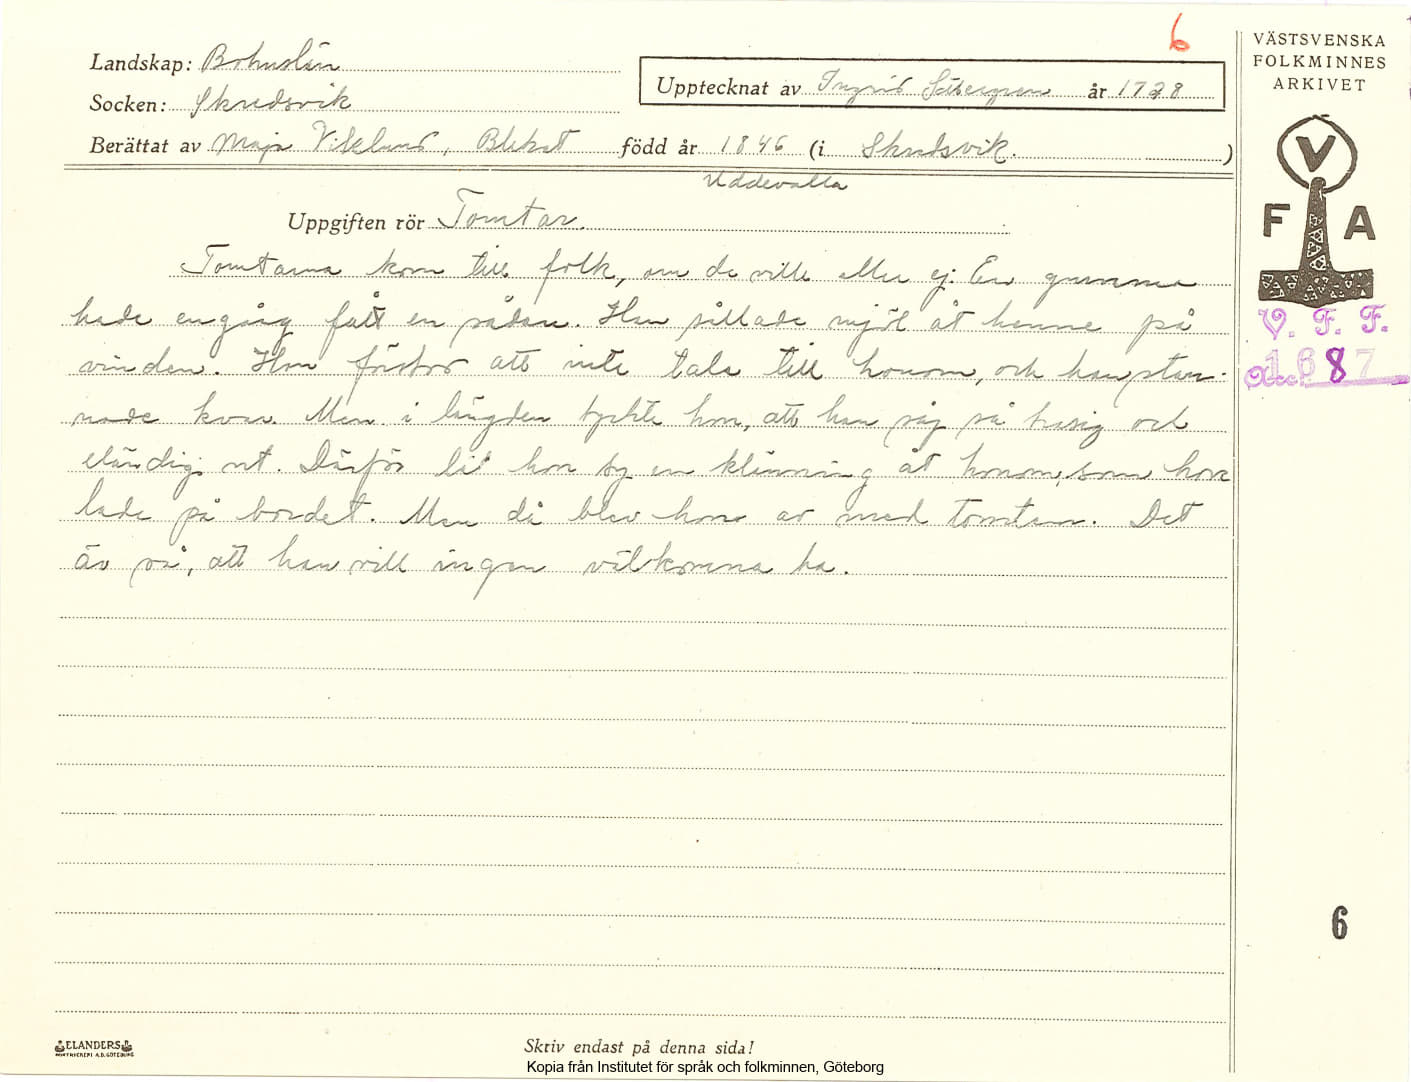 6
Landskap: Bohuslän
Socken: Skredsvik
Upptecknat av Ingrid år 1928
Berättat av Maja Viklund, född år 1846 (i Skredsvik.)
Uddevalla
Uppgiften rör Tomtar.
Tomtarna kom till folk, om de ville eller ej. En gumma
hade engång fått en sådan. Han sållade mjöl åt henne på
vinden. Hon förstod att inte tala till honom, och han stan-
nade kvar. Men i längden tyckte hon, att han såg så trasig och
eländig ut. Därför lät hon sy en klänning åt honom, som hon
lade på bordet. Men då blev hon av med tomten. Det
är så, att han vill ingen välkomna ha.
VÄSTSVENSKA
FOLKMINNES
ARKIVET
V
F A
V. F. F.
Acc. 1687
6
ELANDERS
Skriv endast på denna sida!
Kopia från Institutet för språk och folkminnen, Göteborg